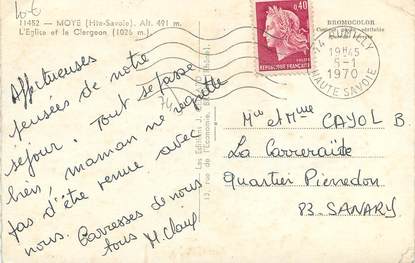 10€
11452 - MOYE (Hte-Savoie). Alt. 491 m.
L'Eglise et le Clergeon (1025 m.)
Affectueuses
pensées de notre
séjour. Tout se passe
bien, maman ne regrette
pas d'être venue avec
nous. Caresses de nous
tous
74
Les Editions J.
rue de l'Economie,
BROMOCOLOR
0,40
REPUBLIQUE FRANCAISE
POSTES
74 RUMILLY
19H45
5-1
1970
HAUTE SAVOIE
Mr et Mme CAYOL B.
La Carreraïde
Quartier Pierredon
83. SANARY